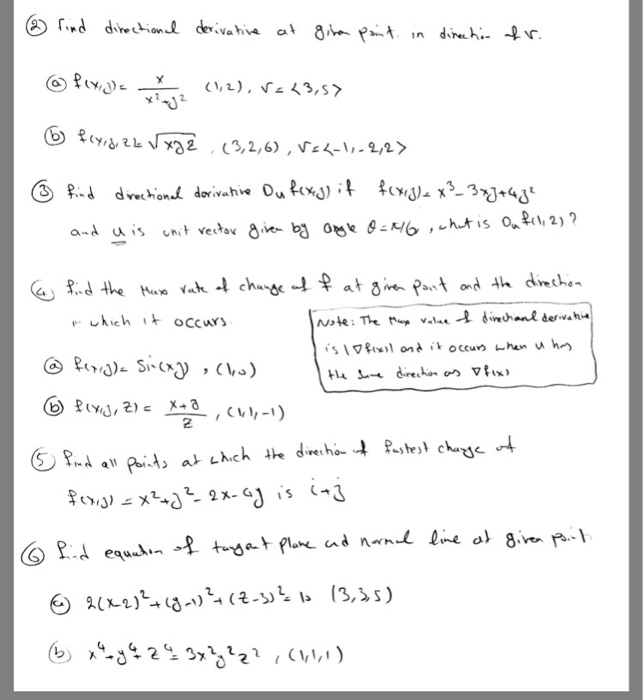 ② Find directional derivative at given point in direction of v.
ⓐ f(x,y) = x / (x²+y²) (1,2), v = <3,5>
ⓑ f(x,y,z) = √xyz, (3,2,6), v = <-1,-2,2>
③ find directional derivative Du f(x,y) if f(x,y) = x³-3xy+4y²
and u is unit vector given by angle θ = π/6, what is Du f(1,2)?
④ find the Max rate of change of f at given point and the direction
in which it occurs.
Note: The Max value of directional derivative
is |∇f(x)| and it occurs when u has
the same direction as ∇f(x)
ⓐ f(x,y) = Sin(xy), (1,0)
ⓑ f(x,y,z) = (x+y) / z, (1,1,-1)
⑤ find all points at which the direction of fastest change of
f(x,y) = x²+y²-2x-4y is i+j
⑥ find equation of tangent plane and normal line at given point
ⓐ 2(x-2)²+(y-1)²+(z-3)² = 10 (3,3,5)
ⓑ x⁴+y⁴+z⁴ = 3x²y²z², (1,1,1)